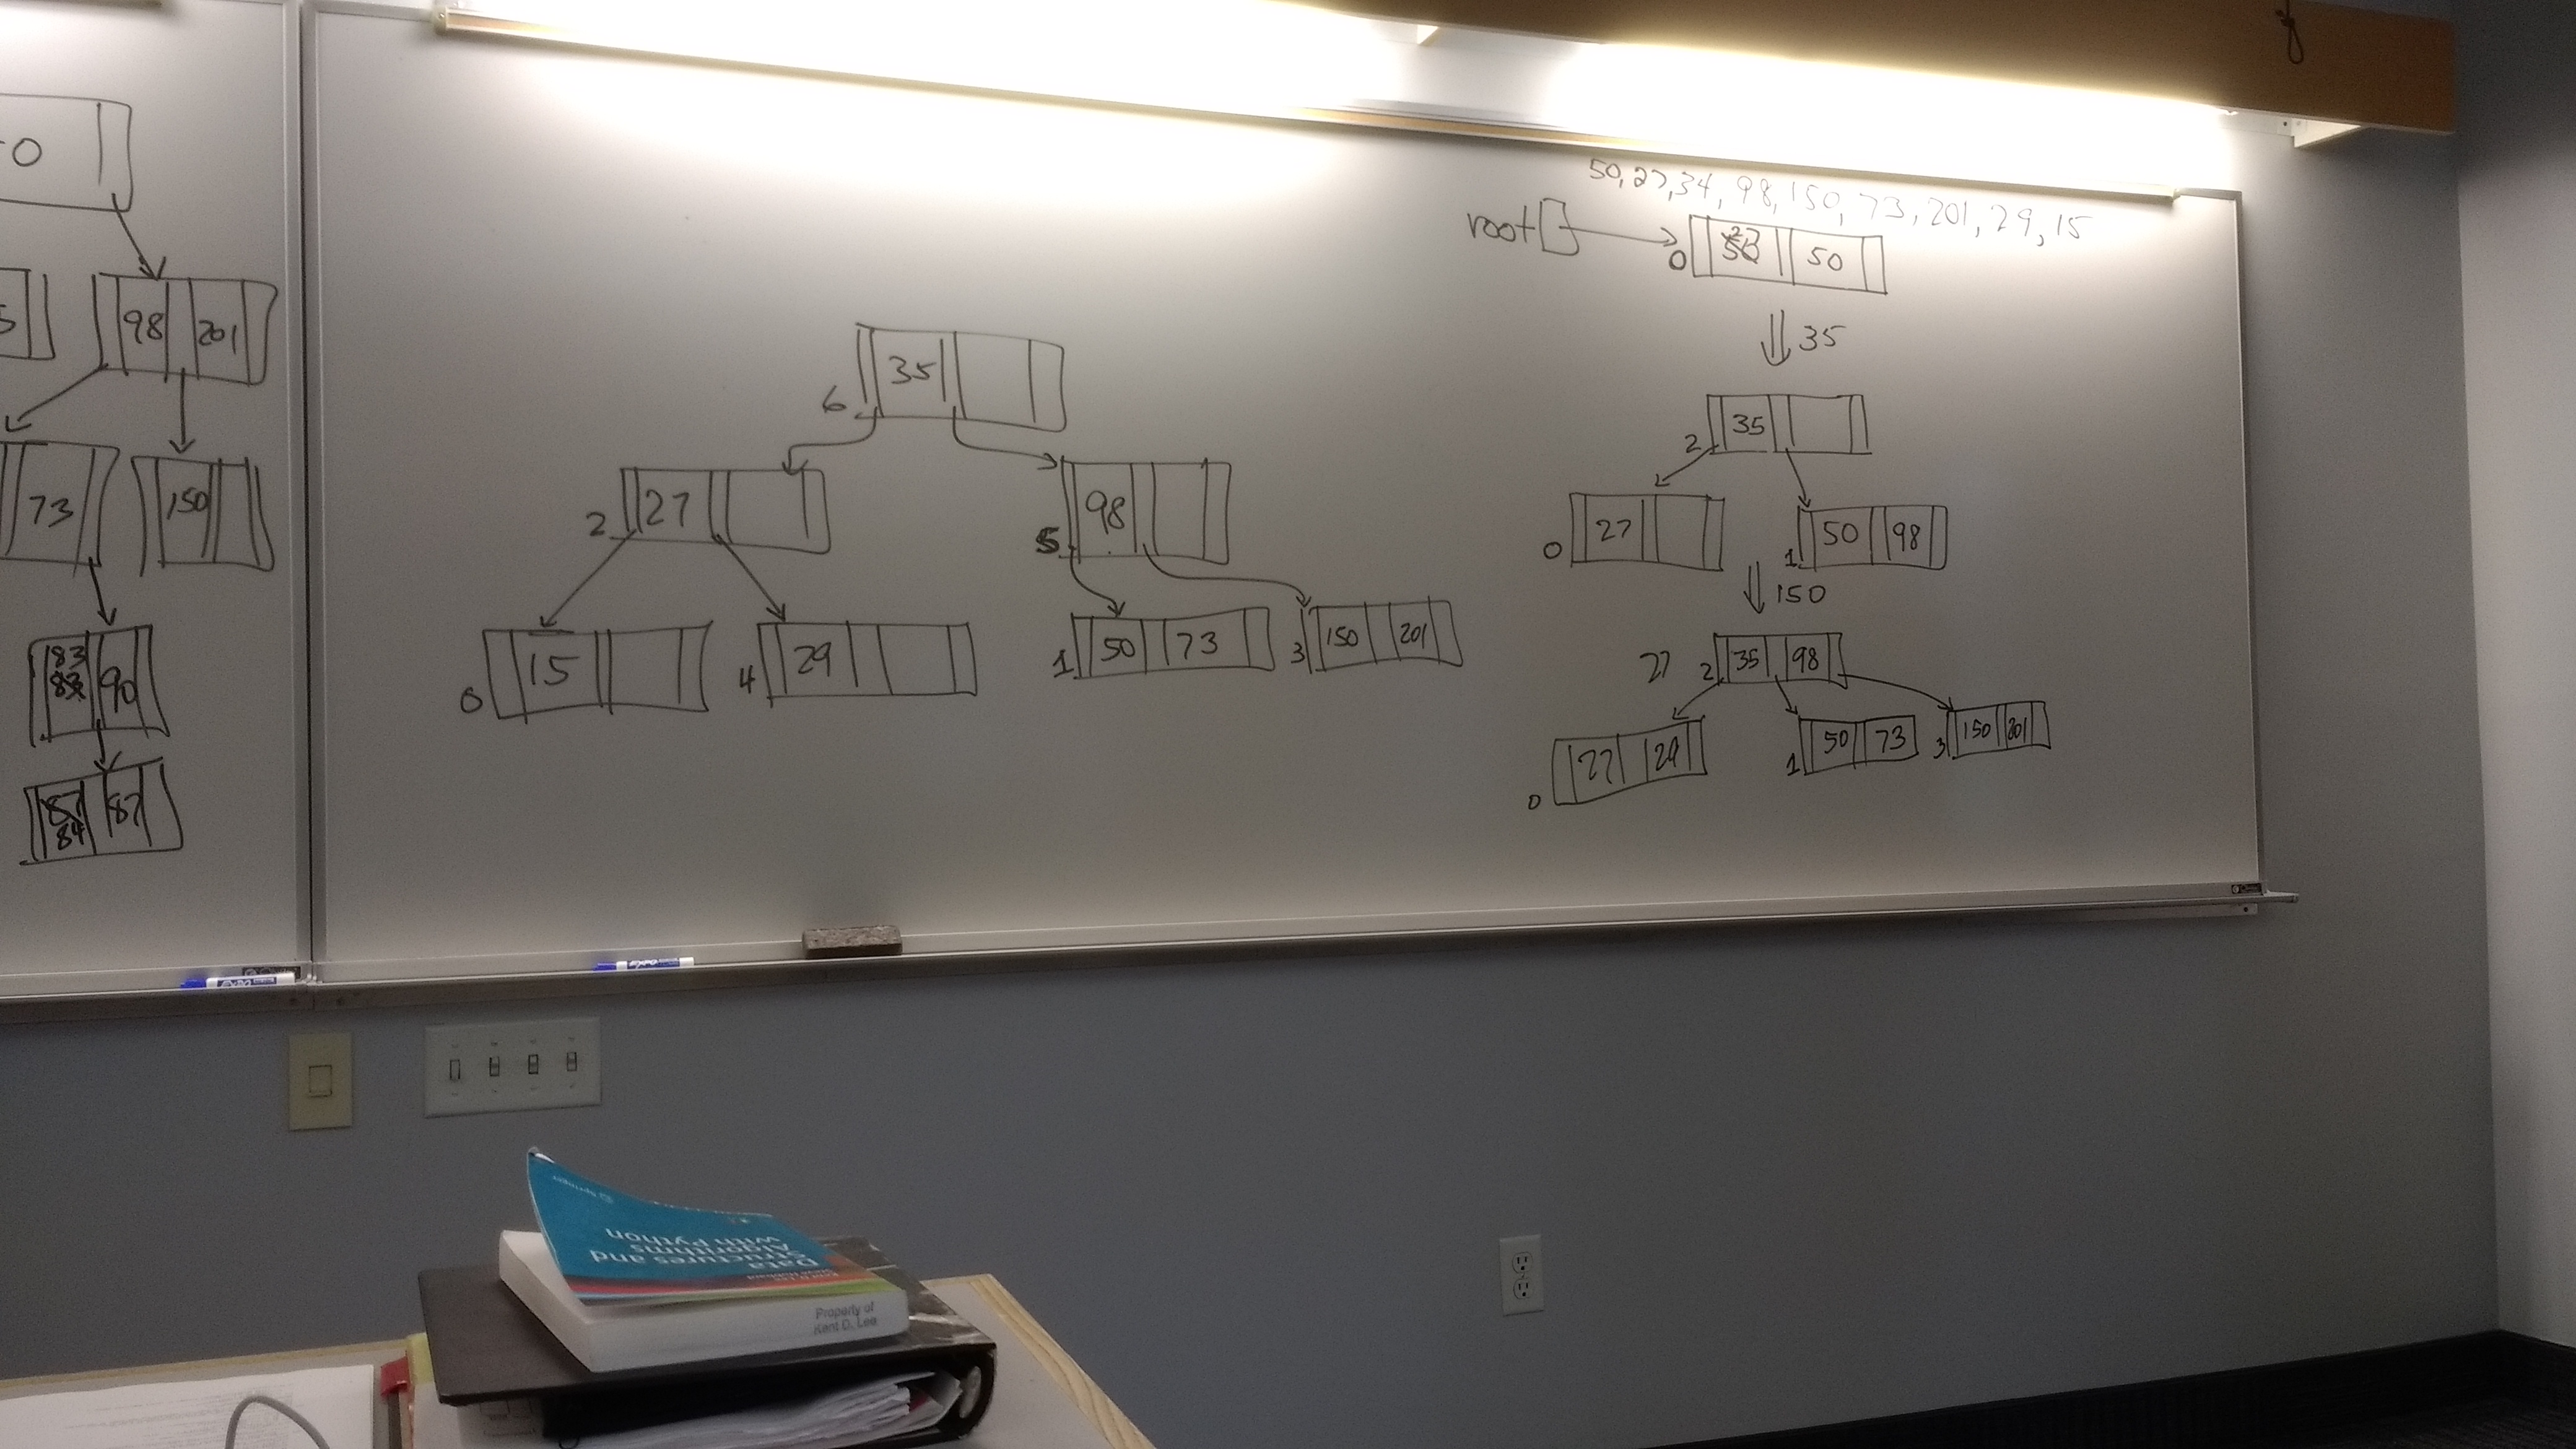 0
98 201
73 150
83
83 90
87 87
84
35
6
27 98
2 5
15 29 50 73 150 201
0 4 1 3
50, 27, 34, 98, 150, 73, 201, 29, 15
root 27
0 50 50
35
35
2
27 50 98
0 1
150
27 2 35 98
27 29 50 73 150 201
0 1 3
EXPO
Data
Structures and
Algorithms
with Python
Springer
Property of
Kent D. Lee